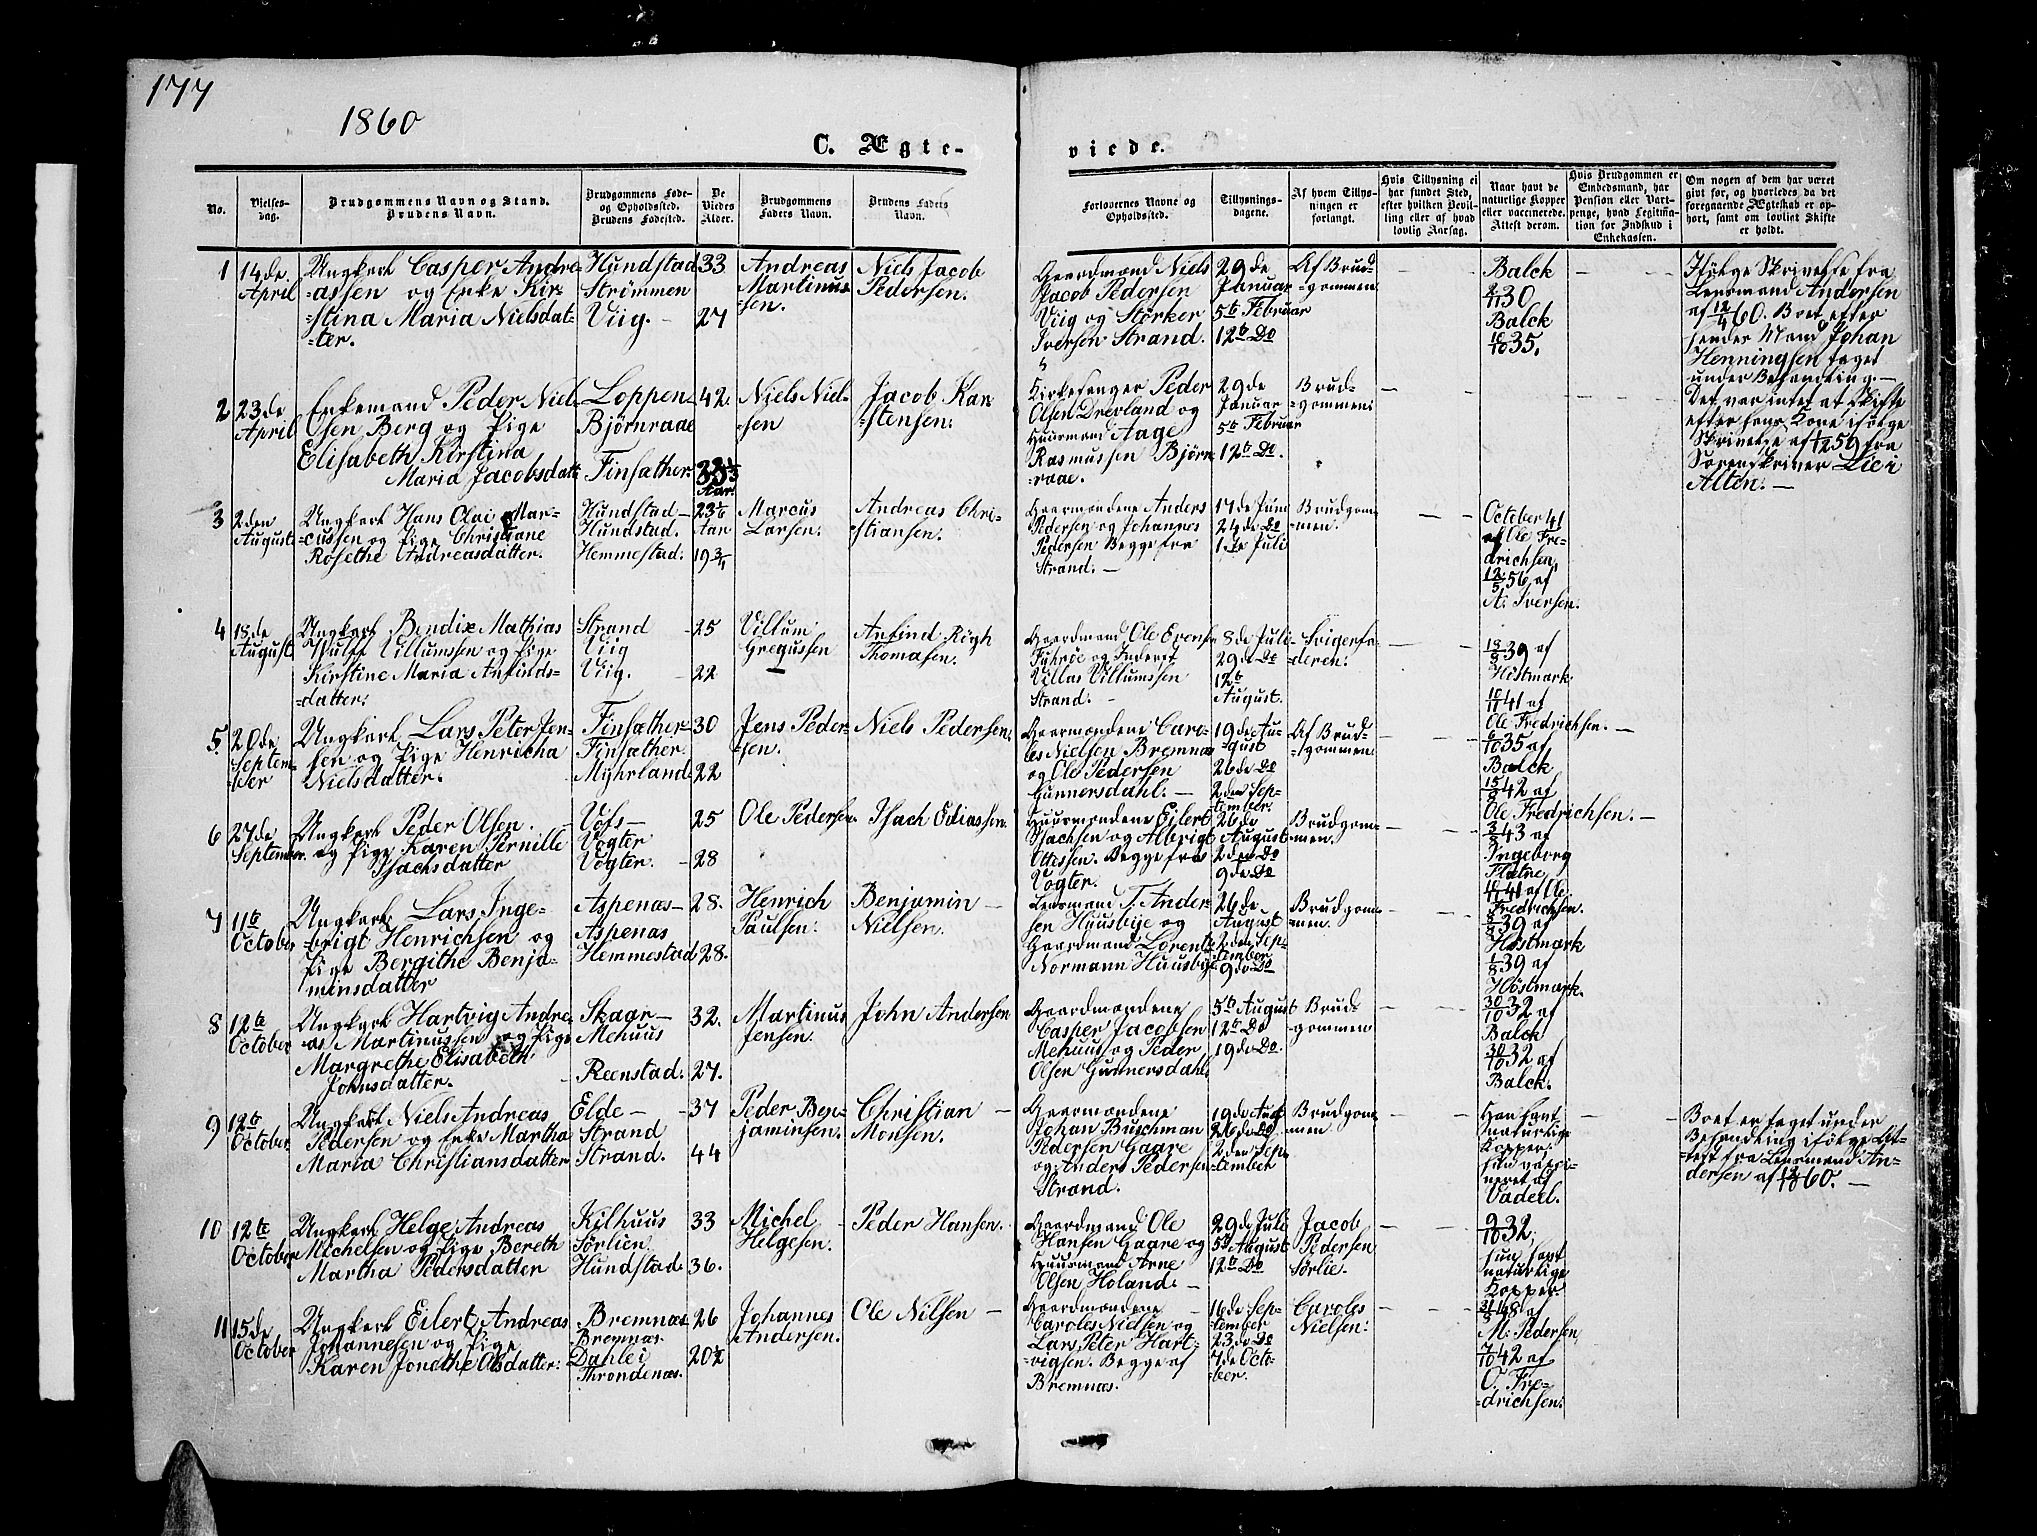 177
1860
C. Ægte-
viede.
No.
Vielses-
dag.
Brudgommens Navn og Stand.
Brudens Navn.
Brudgommens Føde-
og Opholdssted.
Brudens Fødested.
De
Viedes
Alder.
Brudgommens
Faders Navn.
Brudens Faders
Navn.
Forlovernes Navne og
Opholdssted.
Tillysnings-
dagene.
Af hvem Tillys-
ningen er
forlangt.
Hvis Tillysning ei
har fundet Sted,
efter hvilken Bevil-
ling eller af hvad
lovlig Aarsag.
Naar havt de
naturlige Kopper
eller vaccinerede.
Attest derom.
Hvis Brudgommen er
Embedsmand, har
Pension eller Vart-
penge, hvad Legitima-
tion for Indskud i
Enkekassen.
Om nogen af dem har været
givt før, og hvorledes da det
foregaaende Ægteskab er op-
hørt, samt om lovligt Skifte
er holdt.
1
14de
April
Ungkarl Casper Andre-
assen og Enke Kir-
=stina Maria Nielsdat-
=ter.
Hundstad
Strømmen
Viig. -
33
27
Andreas
Martinus-
=sen.
Niels Jacob
Pedersen.
Gaardmænd Niels
Jacob Pedersen
Viig og Størker
Iversen Strand.
29de
Januar
5te Februar
12te Do
Af Brud
=gommen
Balck
2/11 30
Balck
10/10 35.
Ifølge Skrivelse fra
Lensmand Andersen
af 12/4 60. Boet efter
hendes Mand Johan
Henningsen taget
under Behandling -
2
23de
April
Enkemand Peder Niel-
sen Berg og Pige
Elisabeth Kirstina
Maria Jacobsdatt
Loppen-
Bjørnraae
Finsæther
42.
33 1/3
Aar
Niels Niel-
=sen
Jacob Kar
=stensen.
Kirkesanger Peder
Olsen Drevland og
Huusmand Aage
Rasmussen Bjørn
=raae.
29de
Januar
5te Februar
12te Do.
Brud-
=gommen.
Det var intet at skifte
efter hans Kone ifølge
Skrivelse af 1259 fra
Sorenskriver Lie i
Alten. -
3
2den
August
Ungkarl Hans Olai Mar-
cussen og Pige Christiane
Rosethe Andreasdatter.
Hundstad-
Hundstad.
Hemmestad.
23 1/6
Aar
19 3/4
Marcus
Larsen.
Andreas Chri-
=stiansen.
Gaardmændene Anders
Pedersen og Johannes
Pedersen Begge fra
Strand. -
17de Juni
24de Do
1ste Juli
Brudgom-
men.
October 41
af Ole Fre-
drichsen
12/5 56 af
A. Iversen.
4
18de
August
Ungkarl Bendix Mathias
Wulff Villumsen og Pige
Kirstine Maria Anfinds-
=datter.
Strand
Viig
Viig.
25
22
Villum
Gregussen
Anfind Righ
Thomasen.
Gaardmænd Ole Evens
Villas Villumssen
Strand. -
8de Juli
29de Do
12te
August.
Svigerfa-
=deren.
18/9 39 af
Høstmark
10/11 41 af
Ole Fredrichsen. -
5.
20de
Septem-
=ber
Ungkarl Lars Peter Jen-
sen og Pige Henricha
Nielsdatter.
Finsæther-
Finsæther
Myhrland.
30
22
Jens Peder-
sen.
Niels Pedersen.
Gaardmændene Caro-
les Nielsen Bremnæs
og Ole Pedersen
Gunnersdahl. -
19de Au-
=gust
26de Do
2den Sep-
tember.
Af Brud
=gommen
6/10 35 af
Balck
15/9 42 af
Ole Fredrichsen. -
6
27de
September
Ungkarl Peder Olsen
og Pige Karen Pernille
Isachsdatter
Vofs-
Vogter
Vogter.
25
28
Ole Pedersen.
Isach Eliassen.
Huusmændene Eilert
Isachsen og Albrigt
Ottessen. Begge fra
Vogter.
26de
August
2den Do
9de Do
Brudgom-
men.
3/3 43 af
Ingeborg
Flatne
10/11 41 af Ole
Fredrichsen.
7
11te
October
Ungkarl Lars Inge-
=brigt Henrichsen og
Pige Bergithe Benja-
minsdatter
Aspenæs-
Aspenæs
Hemmestad
28.
28.
Henrich
Paulsen.
Benjamin -
Nielsen.
Lensmand T. Ander-
sen Huusbye og
Gaardmand Lorents
Normann Huusbye
26de
August
2den Sep-
tember
9de Do
Brudgom-
men.
8/8 39 af
Høstmark
1/8 39 af
Høstmark.
8
12te
October
Ungkarl Hartvig Andre-
as Martinussen og Pige
Margrethe Elisabeth
Johnsdatter.
Skaar-
Mehuus
Reenstad.
32.
27.
Martinus
Jensen.
John Andersen
Gaardmændene
Casper Jacobsen
Mehuus og Peder
Olsen Gunnersdahl
5te August
12te Do
19de Do.
Brud
gommen
30/10 32 af
Balck
30/10 32 af
Balck.
9
12te
October
Ungkarl Niels Andreas
Pedersen og Enke Martha
Maria Christiansdatter
Elde -
Strand
Strand.
37
44
Peder Ben-
jaminsen.
Christian -
Monsen.
Gaardmændene
Johan Buschman
Pedersen Gaare
og Anders Pedersen
Strand.
19de Aug
26de Do
2den Sep-
tember
Brudgom-
men.
Han havt
naturlige
Kopper.
hun vacci-
neret af
Vadel.
Boet er taget under
Behandling ifølge At-
=test fra Lensmand An-
dersen af 12/10 60. -
10
12te
October
Ungkarl Helge Andreas
Michelsen og Pige Bereth
Martha Pedersdatter
Kilhuus
Sørlien
Hundstad.
33
36.
Michel
Helgesen.
Peder Hansen.
Gaardmænd Ole
Hansen Gaare og
Huusmand Arne
Olsen Holand. -
29de Juli
5te August
12te Do
Jacob
Pedersen
Sørlie.
9/10 32.
hun havt
naturlige
Kopper.
11
15de
October
Ungkarl Eilert Andreas
Johannesen og Pige
Karen Jonethe Olsdatter.
Bremnæs
Bremnæs
Dahle i
Throndenæs.
26
20 1/2
Johannes
Andersen.
Ole Nilsen -
Gaardmændene -
Caroles Nielsen og
Lars Peter Hart-
vigsen. Begge af
Bremnæs.
16de Sep-
=tember
23de Do
7de Octo-
ber.
Caroles
Nielsen.
48 af
M. Pedersen
7/10 42 af
O. Fre-
=drichsen.